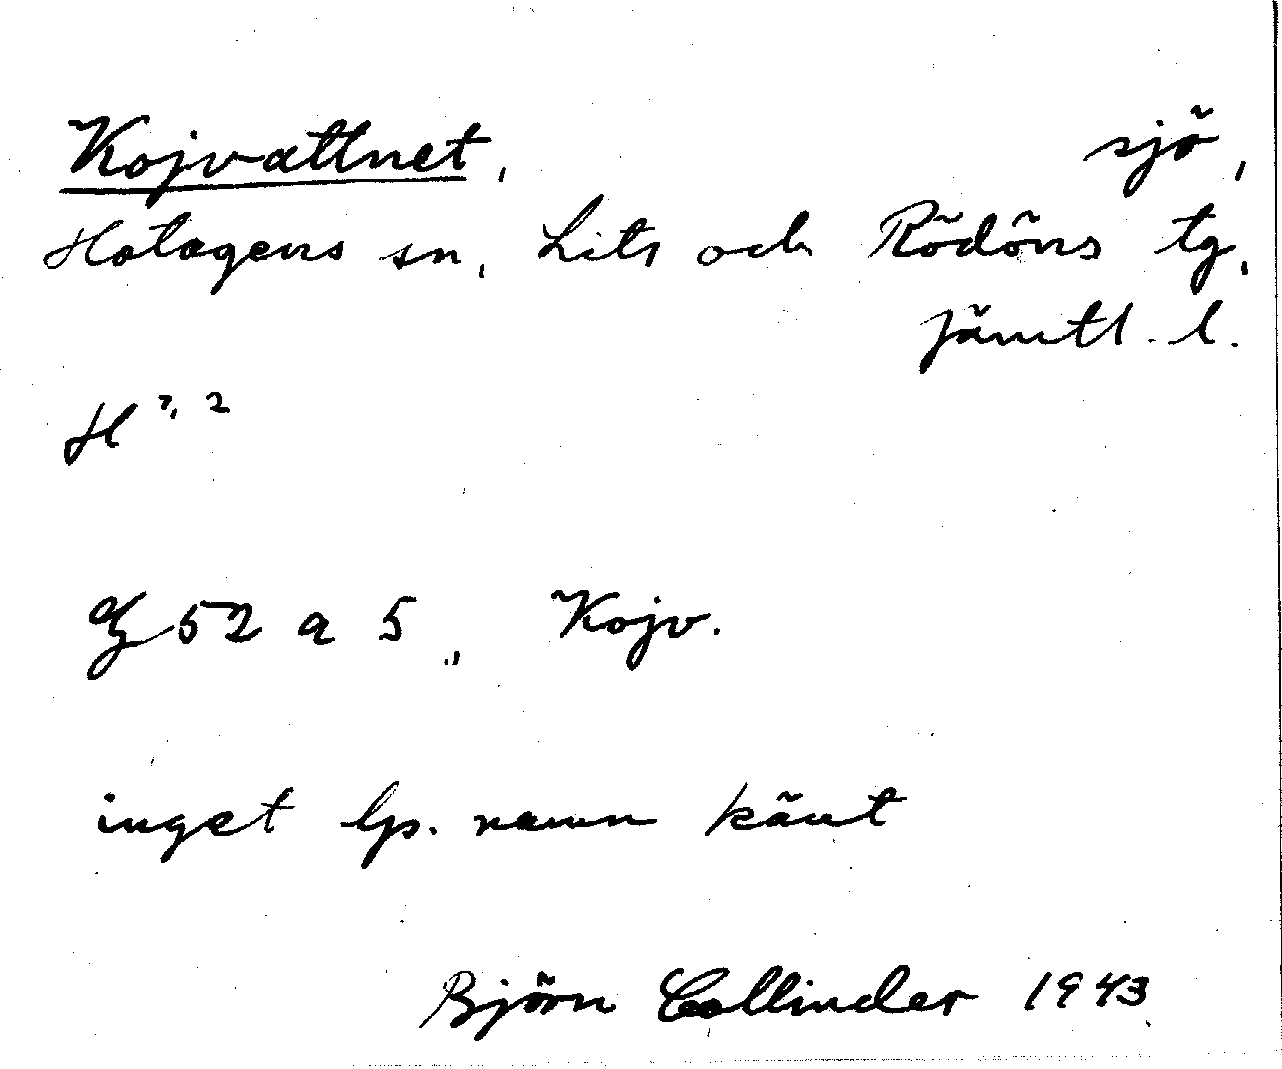 Kojvattnet, sjö,
Hotagens sn, Lits och Rödöns tg,
Jämtl. l.
H 7, 2
52 a 5, Kojv.
inget lp. namn känt
Björn Collinder 1943